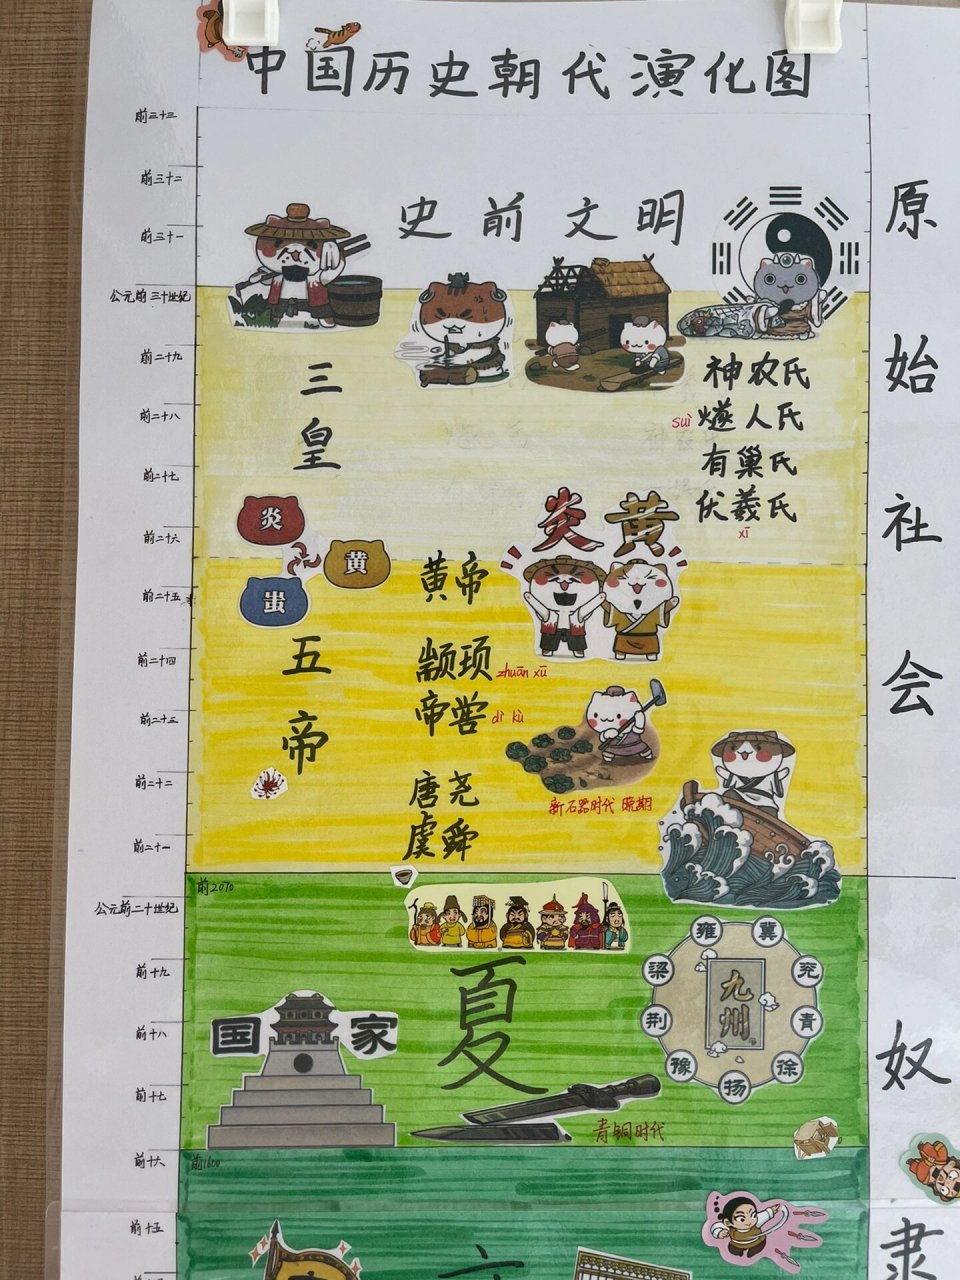 中国历史朝代演化图
前三十三
前三十二
前三十一
公元前三十世纪
前二十九
前二十八
前二十七
前二十六
前二十五
前二十四
前二十三
前二十二
前二十一
公元前二十世纪
前十九
前十八
前十七
前十六
前十五
史前文明
三皇
神农氏
suì 燧人氏
有巢氏
伏羲氏
xī
炎
黄
蚩
炎黄
五帝
黄帝
颛顼 zhuān xū
帝喾 dì kù
唐尧
虞舜
新石器时代 晚期
前2070
夏
国家
九州
雍
冀
兖
青
徐
扬
豫
荆
梁
青铜时代
前1600
原始社会
奴隶